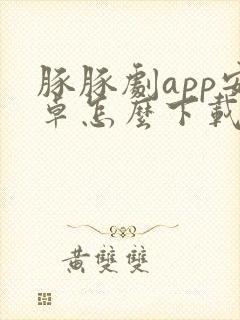 豚豚劇app安
卓怎麼下載
黃雙雙